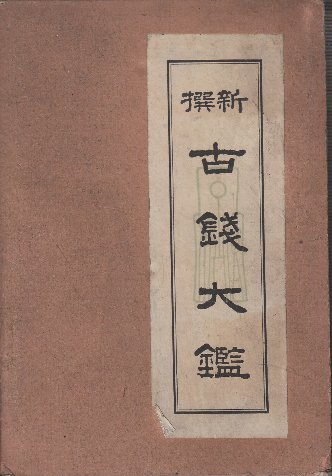 新撰
古錢大鑑